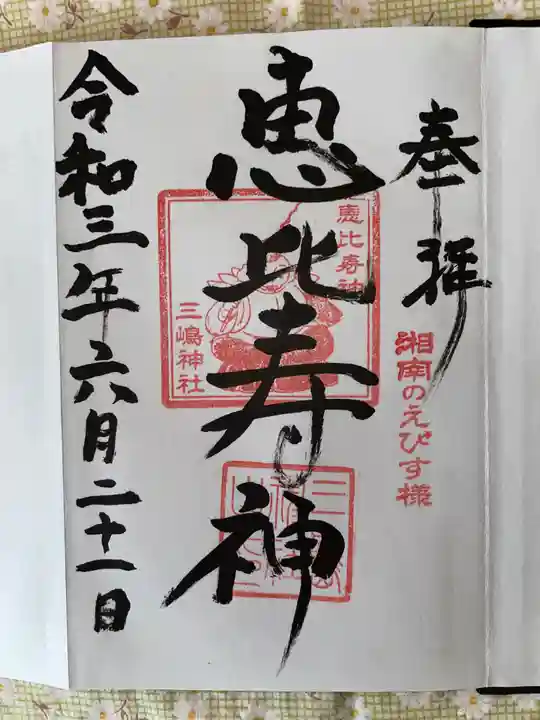 奉拝
湘南のえびす様
恵比寿神
恵比寿神
三嶋神社
令和三年六月二十一日